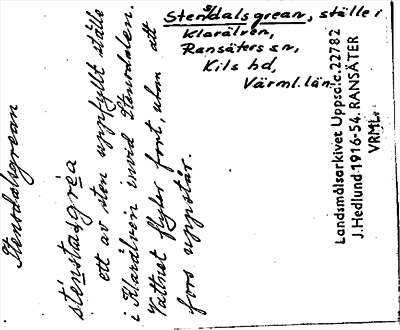 Stensdalsgrean, ställe i
Klarälven,
Ransäters sn,
Kils hd,
Värml. län
Stensdalsgrean
ett av sten uppfyllt ställe
i Klarälven invid Stensdalen.
Vattnet flyter fort, utan att
fors uppstår.
Landsmålsarkivet Uppsala. 22782
J. Hedlund 1916-54. RANSÄTER
VRML.